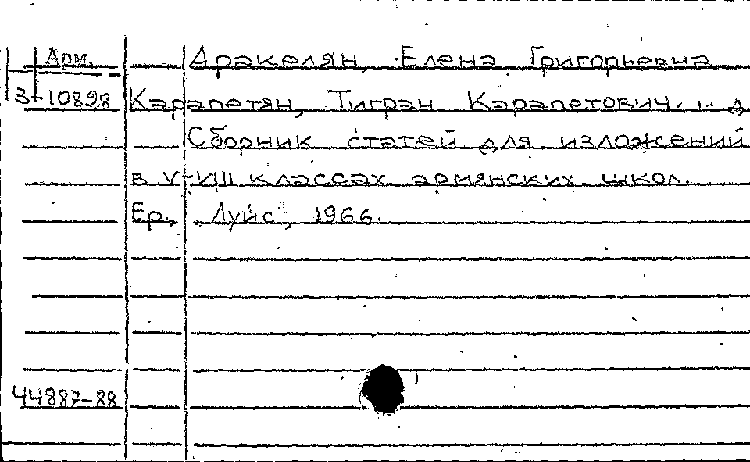 Арм. Аракелян, Елена Григорьевна
3-10898 Карапетян, Тигран Карапетович.
Сборник статей для изложений
в V-VIII классах армянских школ.
Ер., Луйс, 1966.
44887-88